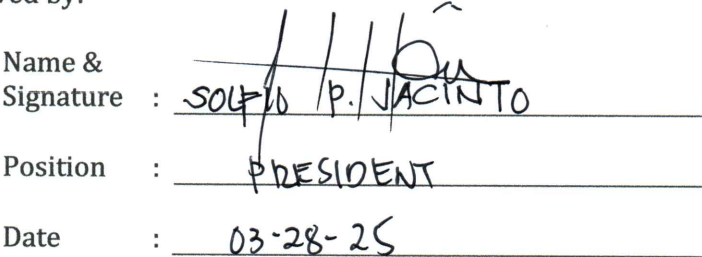 Name &
Signature : P. JACINTO
Position : PRESIDENT
Date : 03-28-25